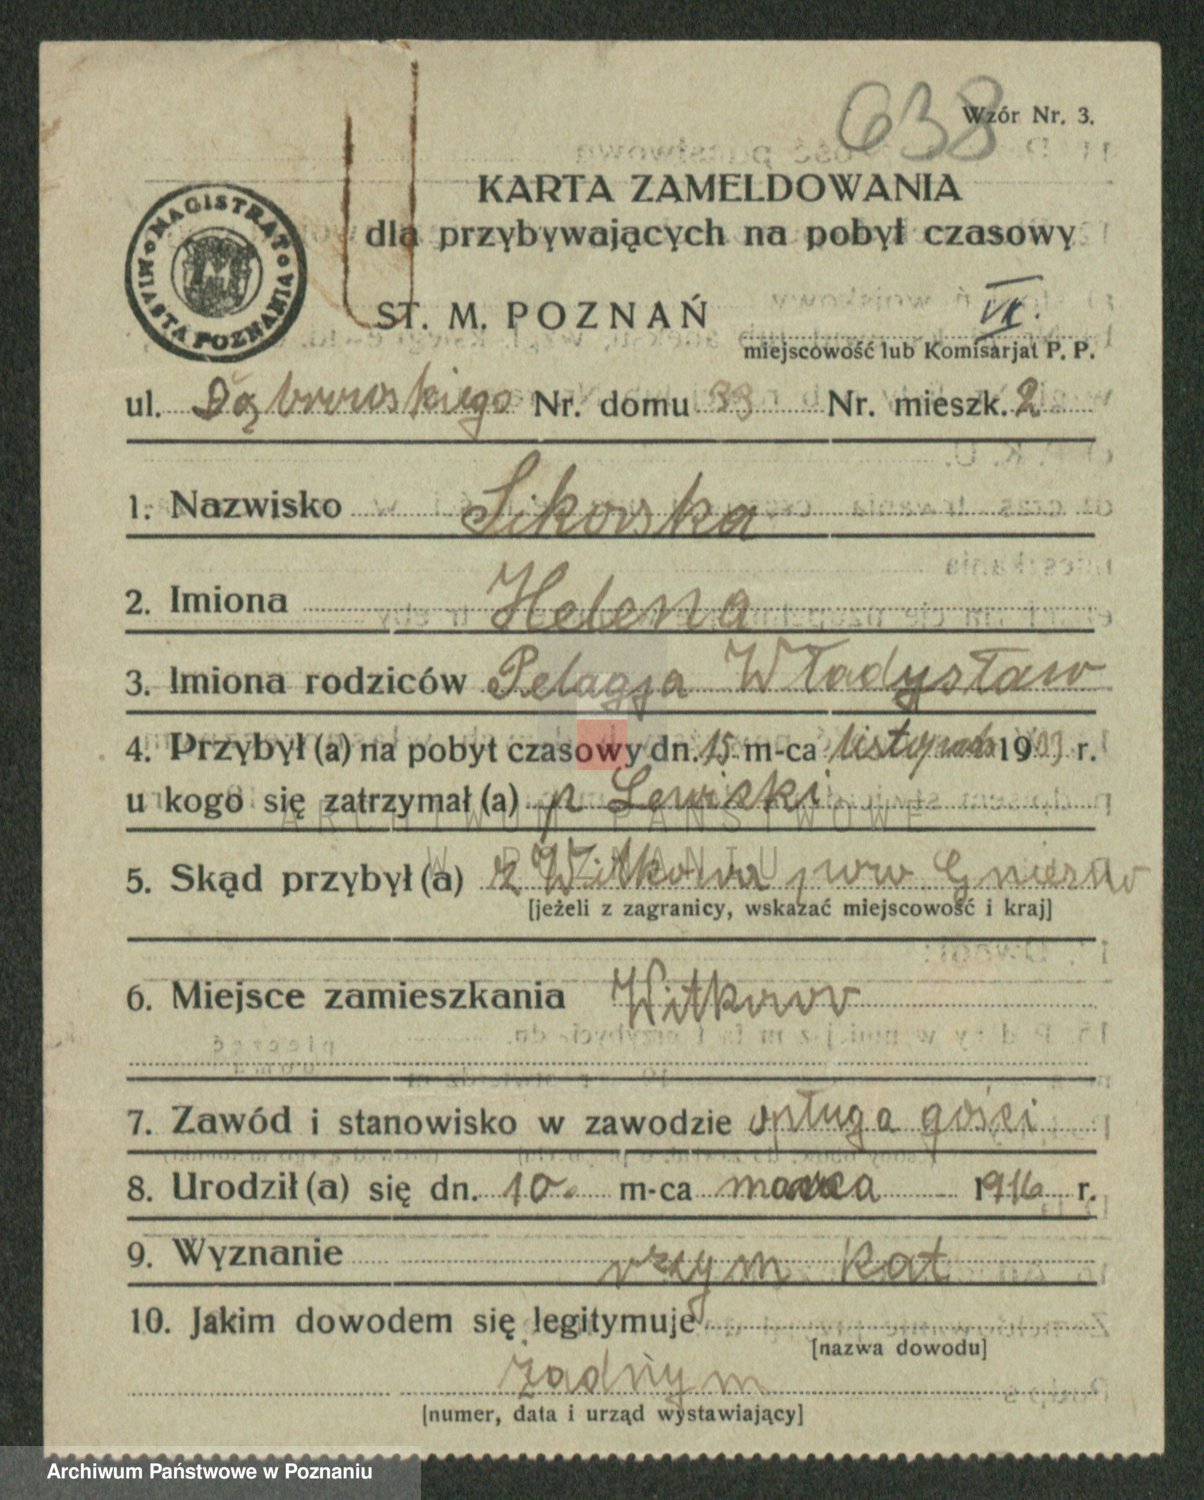 638
Wzór Nr. 3.
KARTA ZAMELDOWANIA
dla przybywających na pobyt czasowy
MAGISTRAT MIASTA POZNANIA
ST. M. POZNAŃ VII.
miejscowość lub Komisarjat P. P.
ul. Dąbrowskiego Nr. domu 33 Nr. mieszk. 2
1. Nazwisko Sikorska
2. Imiona Helena
3. Imiona rodziców Pelagja Władysław
4. Przybył (a) na pobyt czasowy dn. 15 m-ca listopada 1933 r.
u kogo się zatrzymał (a) p Lewicki
5. Skąd przybył (a) z Witkowa pow Gniezno
[jeżeli z zagranicy, wskazać miejscowość i kraj]
6. Miejsce zamieszkania Witkowo
7. Zawód i stanowisko w zawodzie opługa gości
8. Urodził (a) się dn. 10. m-ca marca 1916 r.
9. Wyznanie rzym kat
10. Jakim dowodem się legitymuje
[nazwa dowodu]
żadnym
[numer, data i urząd wystawiający]
ARCHIWUM PAŃSTWOWE
W POZNANIU
Archiwum Państwowe w Poznaniu